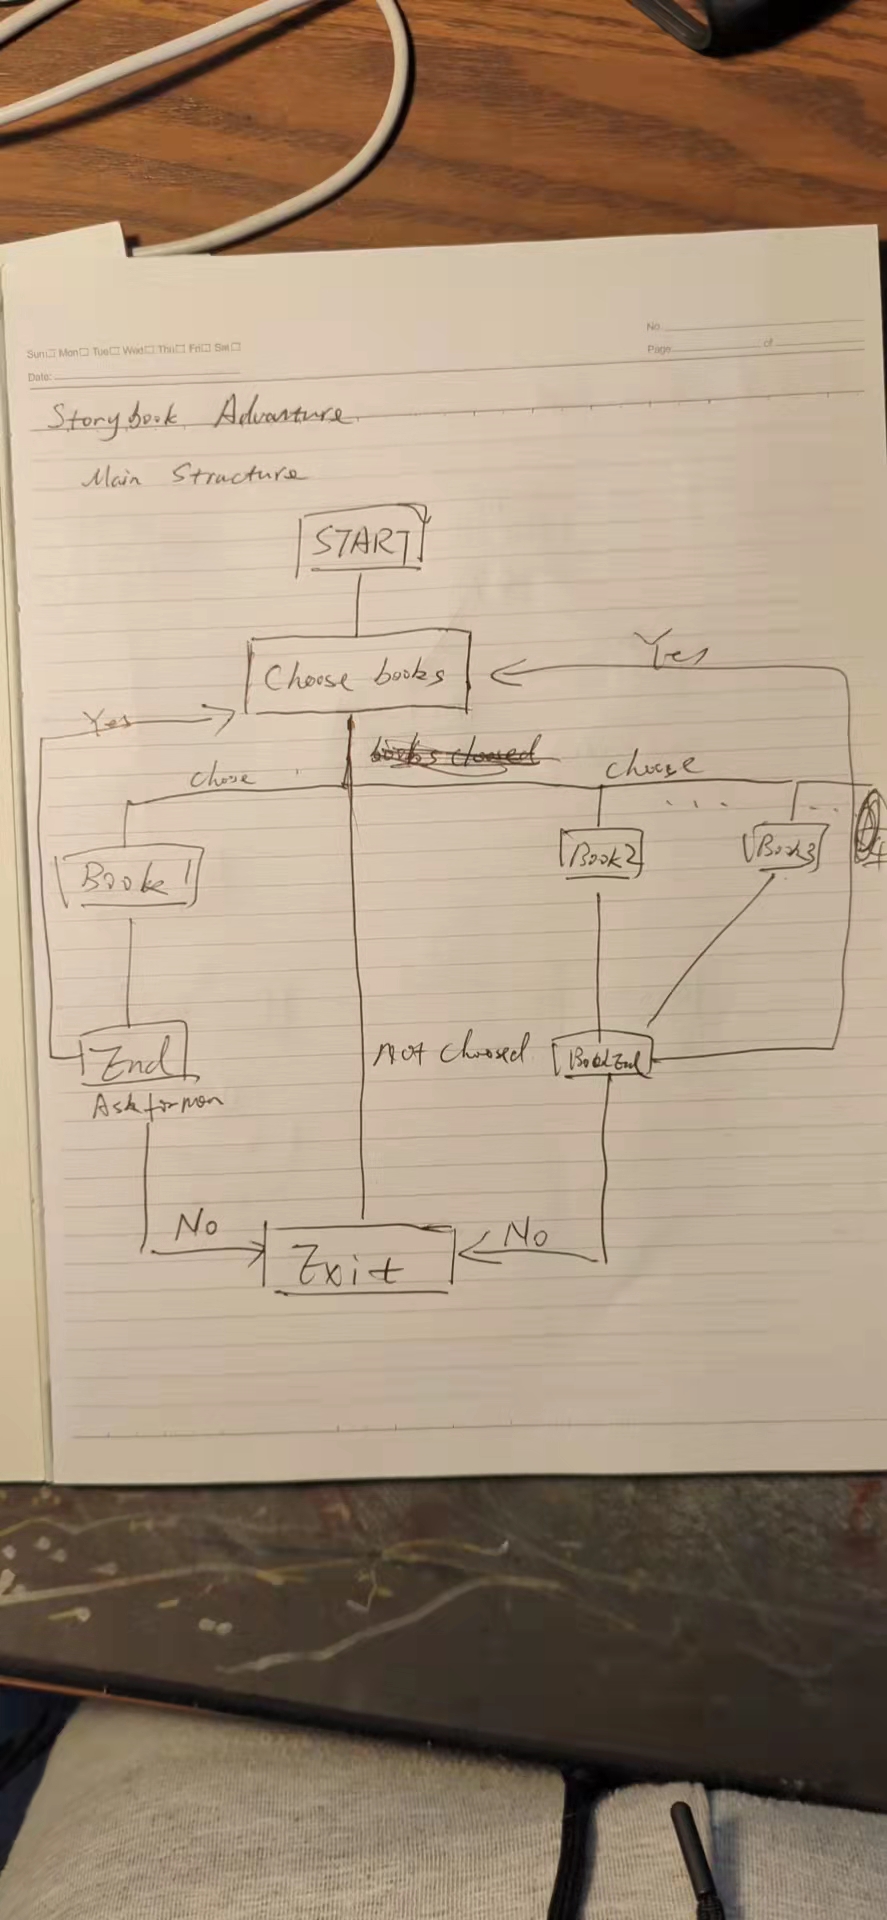 Sun Mon Tue Wed Thu Fri Sat
No.
Date:
Page of
Storybook Advanture
Main Structure
START
Choose books
Yes
Yes
books choosed
chose
choose
Book 1
Book2
Book3
End
Not Choosed
Book End
Ask for
No
No
Exit